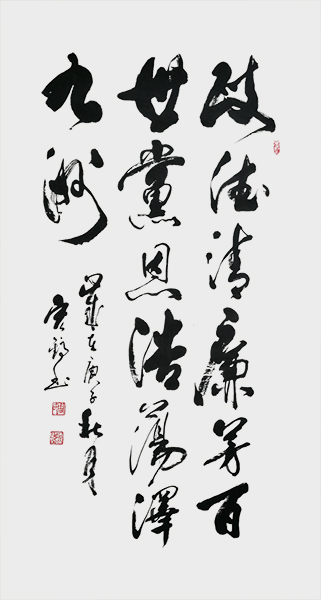 政德清廉芳百
世黨恩浩蕩澤
九洲
歲在庚子秋月
書